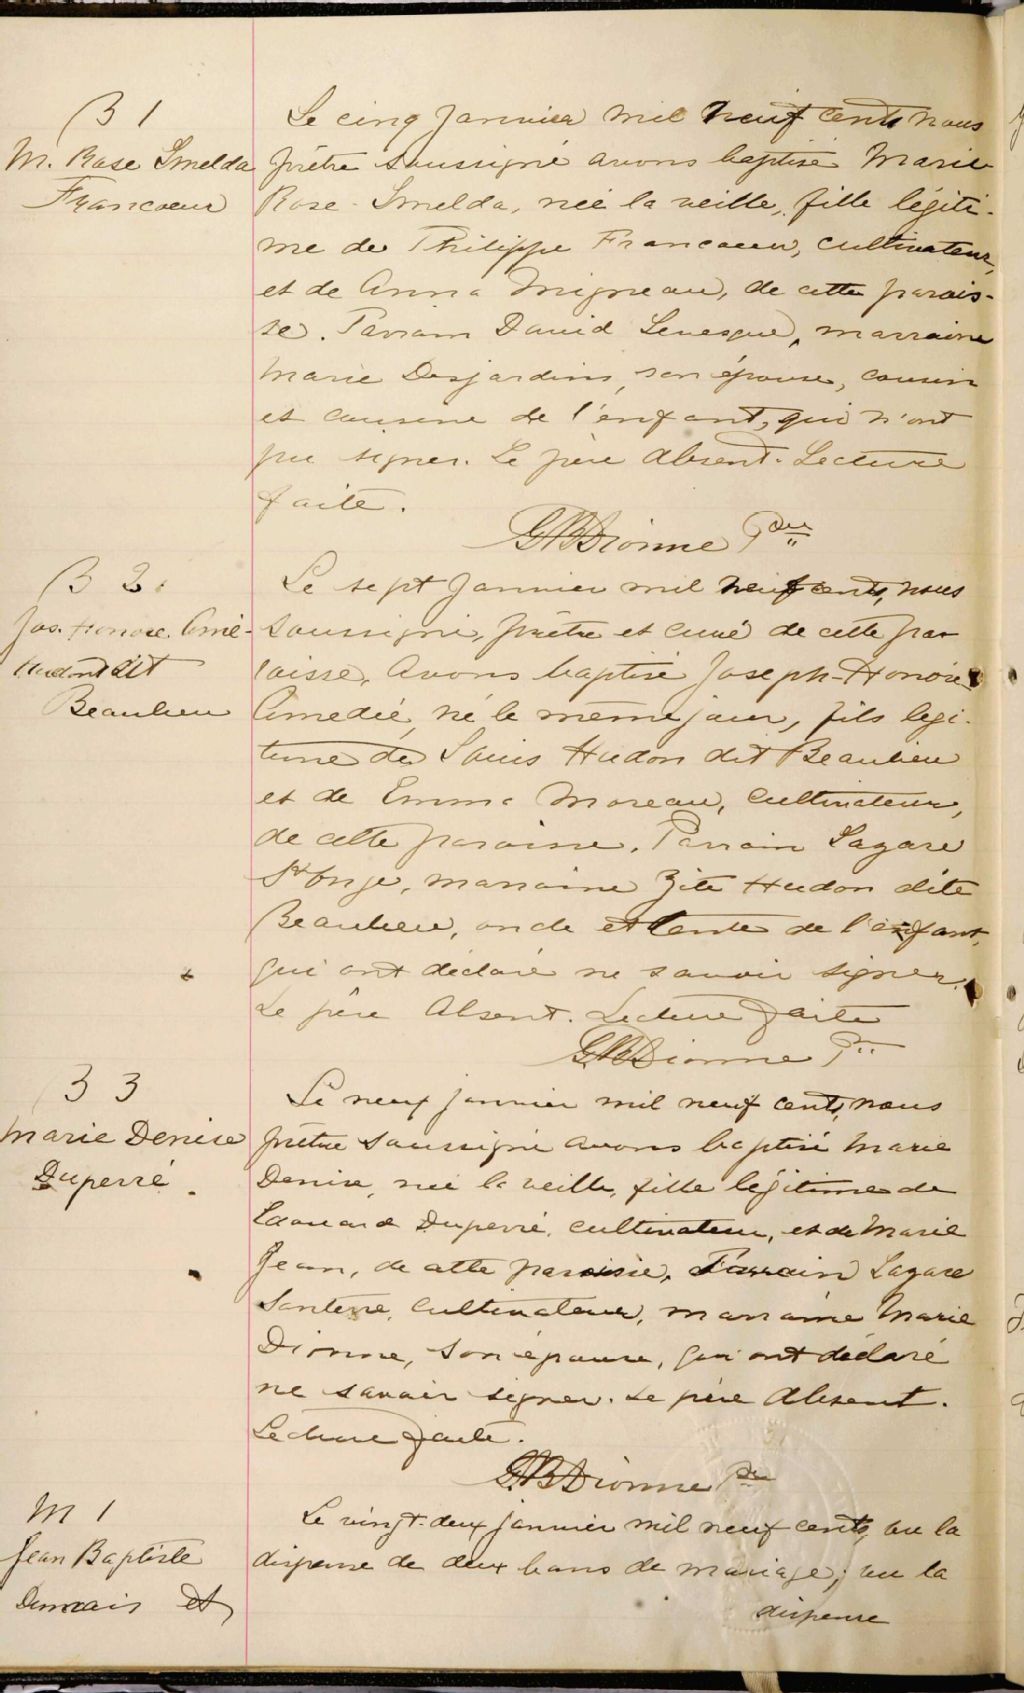 B 1
M. Rose Imelda
Francoeur
Le cinq Janvier mil neuf cents nous
prêtre soussigné avons baptisé Marie
Rose-Imelda, née la veille, fille légiti-
me de Philippe Francoeur, cultivateur,
et de Anna Migneau, de cette parois-
se. Parrain David Levesque, marraine
Marie Desjardins, son épouse, cousin
et cousine de l'enfant, qui n'ont
pu signer. Le père Absent. Lecture
faite.
GBDionne Ptre
B 2.
Jos. Honoré. Amé-
Hudont dit
Beaulieu
Le sept Janvier mil neuf cents, nous
soussigné, prêtre et curé de cette par
roisse, avons baptisé Joseph-Honoré
Amedié, né le même jour, fils légi-
time de Louis Hudon dit Beaulieu
et de Emma Moreau, Cultivateur,
de cette paroisse. Parrain Lazare
St Onge, marraine Zite Hudon dite
Beaulieu, oncle et tante de l'enfant,
qui ont déclaré ne savoir signer.
Le père Absent. Lecture faite
GBDionne Ptre
B 3
Marie Denise
Duperré.
Le neuf janvier mil neuf cents, nous
prêtre soussigné avons baptisé Marie
Denise, née la veille, fille légitime de
Edouard Duperré, cultivateur, et de Marie
Jean, de cette paroisse. Parrain Lazare
Santerre, cultivateur, marraine Marie
Dionne, son épouse, qui ont déclaré
ne savoir signer. Le père Absent.
Lecture faite.
GBDionne Ptre
M 1
Jean Baptiste
Dumais et
Le vingt-deux janvier mil neuf cents, vu la
dispense de deux bans de mariage; vu la
dispense